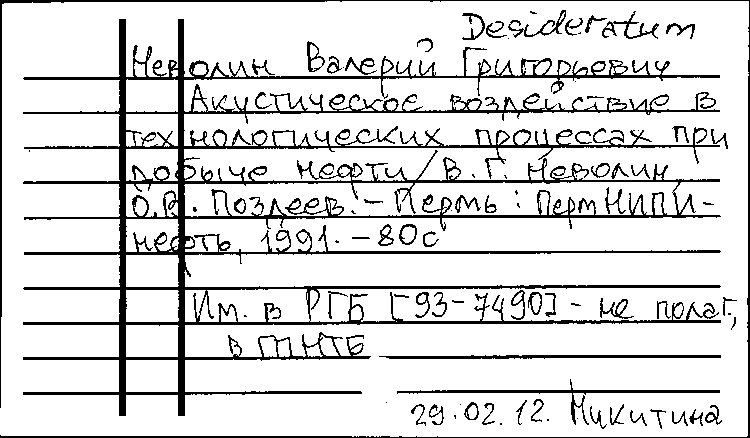 Desideratum
Неволин Валерий Григорьевич
Акустическое воздействие в
технологических процессах при
добыче нефти / В. Г. Неволин,
О.В. Поздеев. - Пермь : ПермНИПИ-
нефть, 1991. - 80с
Им. в РГБ [93-7490] - не полаг,
в ГПНТБ
29.02.12. Микитина